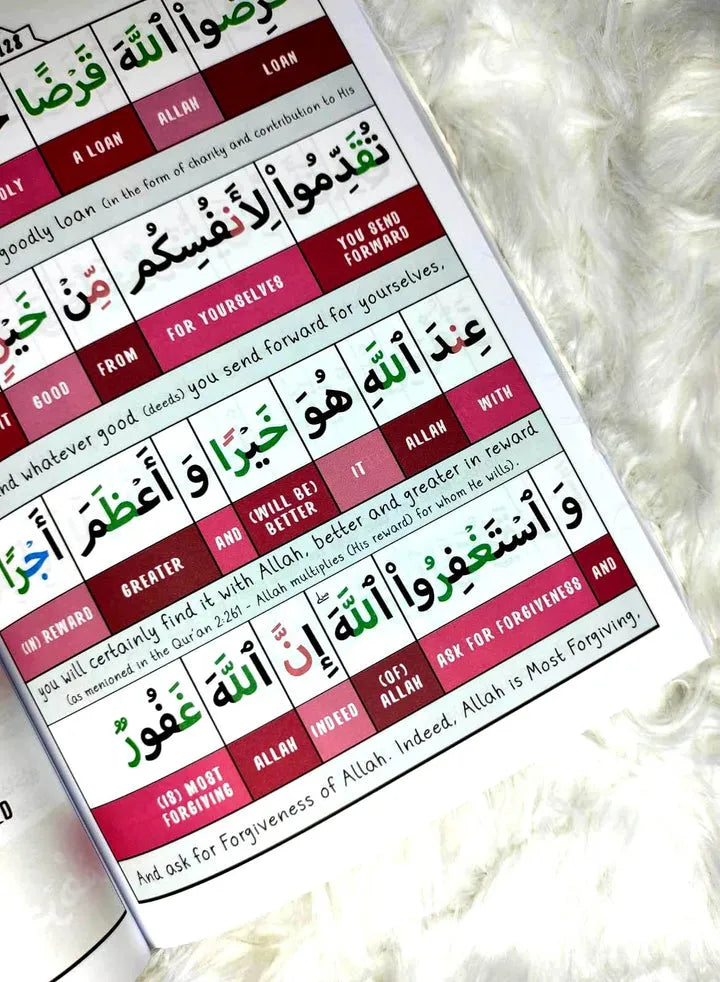 128
ٱللَّهَ قَرْضًا
LOAN ALLAH A LOAN
goodly loan (in the form of charity and contribution to His
تُقَدِّمُواْ لِأَنفُسِكُم مِّنْ
YOU SEND FORWARD FOR YOURSELVES FROM GOOD
whatever good (deeds) you send forward for yourselves,
عِندَ ٱللَّهِ هُوَ خَيْرًا وَ أَعْظَمَ أَجْرًا
WITH ALLAH IT (WILL BE) BETTER AND GREATER (IN) REWARD
you will certainly find it with Allah, better and greater in reward
(as menioned in the Qur'an 2:261 - Allah multiplies (His reward) for whom He wills).
وَ ٱسْتَغْفِرُواْ ٱللَّهَ ۖ إِنَّ ٱللَّهَ غَفُورٌ
AND ASK FOR FORGIVENESS (OF) ALLAH INDEED ALLAH (IS) MOST FORGIVING
And ask for Forgiveness of Allah. Indeed, Allah is Most Forgiving,